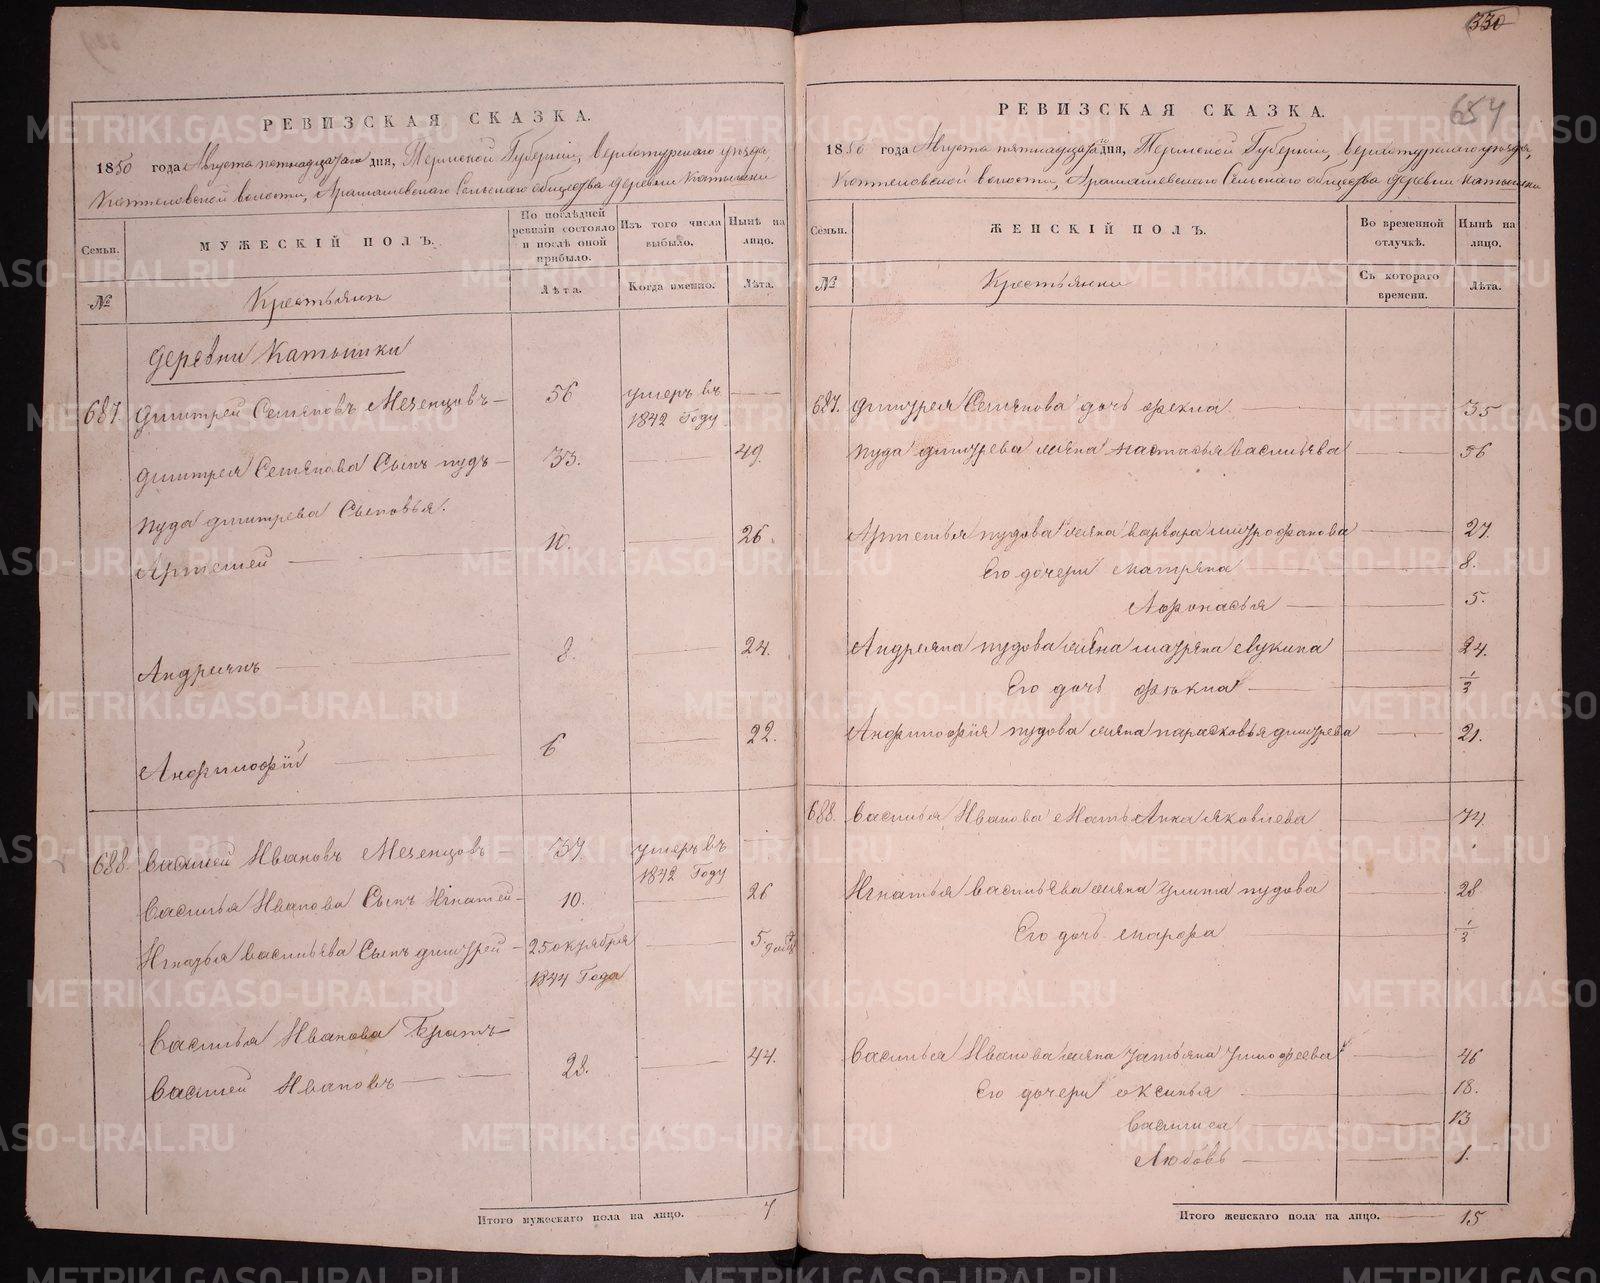 330
654
РЕВИЗСКАЯ СКАЗКА.
1850 года Августа пятнадцатаго дня, Пермской Губерніи, Верхотурскаго уѣзда,
Коптеловской волости, Арамашевскаго Сельскаго общества деревни Катышки
Семьи. МУЖЕСКІЙ ПОЛЪ. По послѣдней ревизіи состояло и послѣ оной прибыло. Изъ того числа выбыло. Нынѣ на лицо.
№ Крестьянъ Лѣта. Когда именно. Лѣта.
Деревни Катышки
687. Дмитрей Семеновъ Мезенцовъ 56 умеръ въ 1842 Году
Дмитрея Семенова Сынъ Пудъ 33. 49.
Пуда Дмитрева Сыновья.
Артемей 10. 26.
Андреянъ 8. 24.
Анфиногѣй 6 22.
688. Василей Ивановъ Мезенцовъ 37 умеръ въ 1842 Году
Василья Иванова Сынъ Игнатей 10. 26
Игнатья Васильева Сынъ Дмитрей 25 октября 1844 Года 5.
Василья Иванова Братъ
Василей Ивановъ 28. 44.
Итого мужескаго пола на лицо. 7
РЕВИЗСКАЯ СКАЗКА.
1850 года Августа пятнадцатаго дня, Пермской Губерніи, Верхотурскаго уѣзда,
Коптеловской волости, Арамашевскаго Сельскаго общества деревни Катышки
Семьи. ЖЕНСКІЙ ПОЛЪ. Во временной отлучкѣ. Нынѣ на лицо.
№ Крестьянки Съ котораго времени. Лѣта.
687. Дмитрея Семенова дочь Фекла 35
Пуда Дмитрева жена Настасья Васильева 56
Артемья Пудова жена Варвара Митрофанова 27.
Его дочери Матрена 8.
Афонасья 5.
Андреяна Пудова жена Матрена Лукина 24.
Его дочь Фекла 1/2
Анфиногѣя Пудова жена Парасковья Дмитрева 21.
688. Василья Иванова Мать Анна Яковлева 74.
Игнатья Васильева жена Улита Пудова 28
Его дочь Марфа 1/2
Василья Иванова жена Татьяна Тимофеева 46
Его дочери Оксинья 18.
Василиса 13
Любовь 1.
Итого женскаго пола на лицо. 15
METRIKI.GASO-URAL.RU